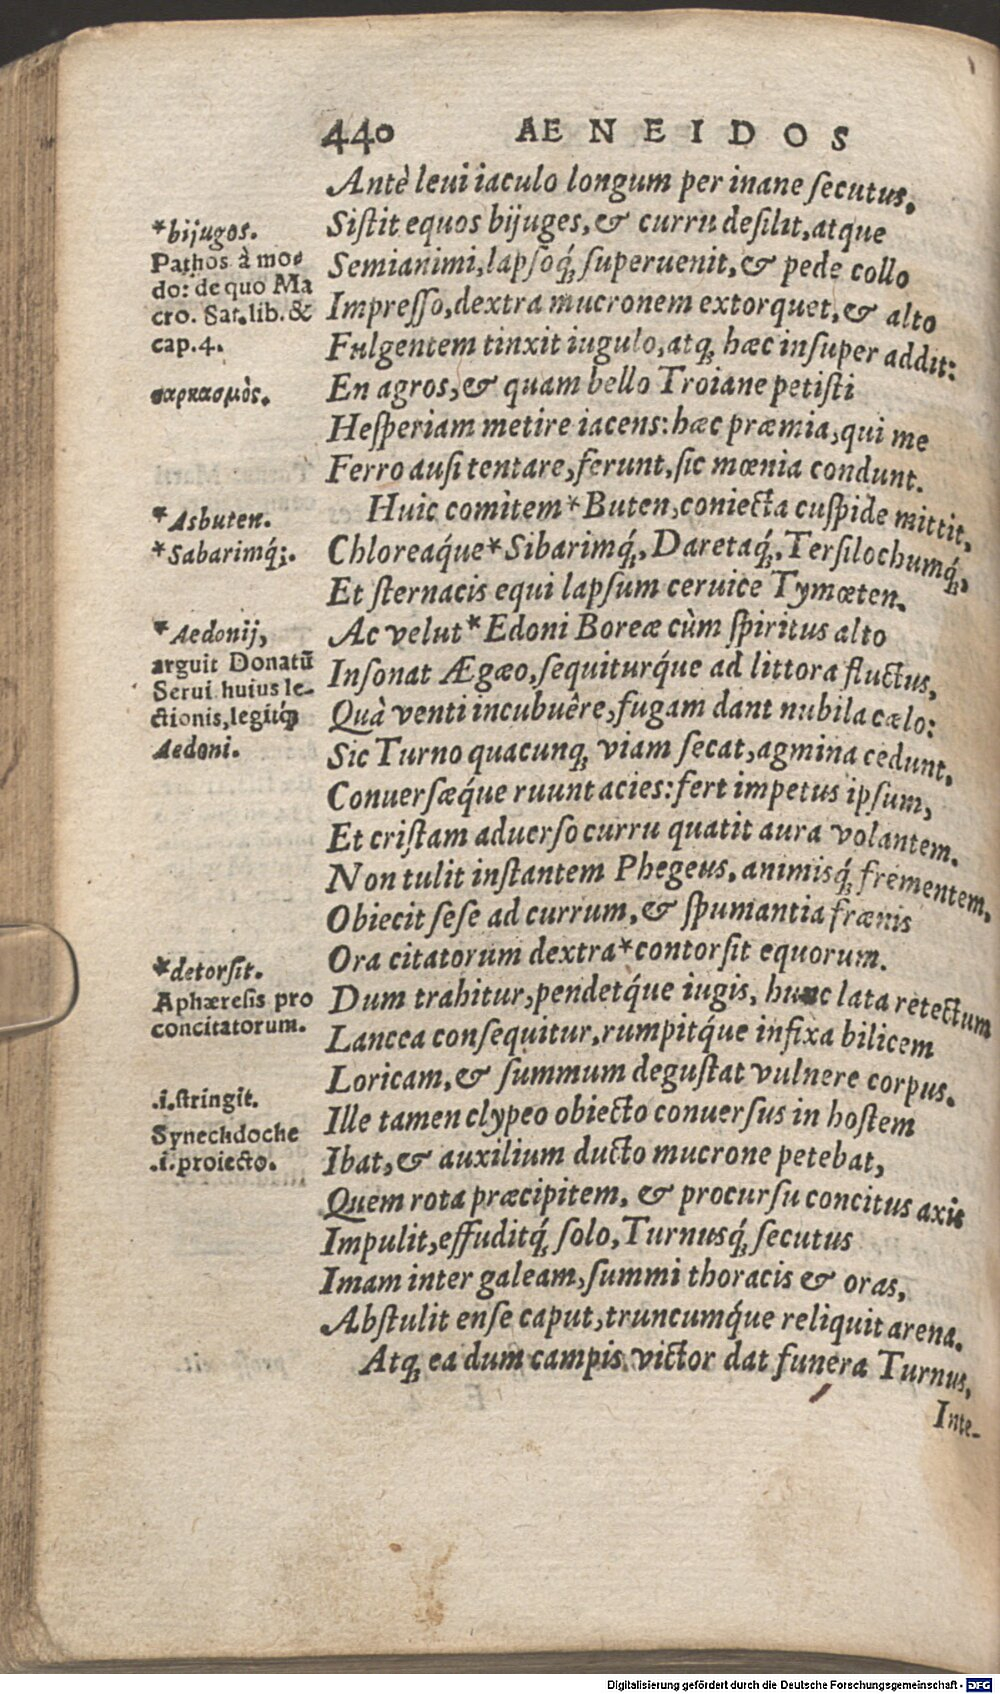 440 AENEIDOS
Antè leui iaculo longum per inane ſecutus,
Siſtit equos bijuges, & curru deſilit, atque
Semianimi, lapſoq́; ſuperuenit, & pede collo
Impreſſo, dextra mucronem extorquet, & alto
Fulgentem tinxit iugulo, atq; hæc inſuper addit:
En agros, & quam bello Troiane petiſti
Heſperiam metire iacens: hæc præmia, qui me
Ferro auſi tentare, ferunt, ſic mœnia condunt.
Huic comitem * Buten, coniecta cuſpide mittit,
Chloreaq́ue * Sibarimq́;, Daretaq́;, Terſilochumq́;,
Et ſternacis equi lapſum ceruice Tymœten.
Ac velut * Edoni Boreæ cùm ſpiritus alto
Inſonat Ægæo, ſequiturq́ue ad littora fluctus,
Quà venti incubuêre, fugam dant nubila cælo:
Sic Turno quacunq; viam ſecat, agmina cedunt,
Conuerſæq́ue ruunt acies: fert impetus ipſum,
Et criſtam aduerſo curru quatit aura volantem.
Non tulit inſtantem Phegeus, animisq́; frementem,
Obiecit ſeſe ad currum, & ſpumantia frænis
Ora citatorum dextra * contorſit equorum.
Dum trahitur, pendetq́ue iugis, hunc lata retectum
Lancea conſequitur, rumpitq́ue infixa bilicem
Loricam, & ſummum deguſtat vulnere corpus.
Ille tamen clypeo obiecto conuerſus in hoſtem
Ibat, & auxilium ducto mucrone petebat,
Quem rota præcipitem, & procurſu concitus axis
Impulit, effuditq́; ſolo, Turnusq́; ſecutus
Imam inter galeam, ſummi thoracis & oras,
Abſtulit enſe caput, truncumq́ue reliquit arena.
Atq; ea dum campis victor dat funera Turnus,
Inte-
*bijugos.
Pathos à mo-
do: de quo Ma
cro. Sat. lib. &
cap. 4.
σαρκασμὸς.
* Asbuten.
*Sabarimq́;.
* Aedonij,
arguit Donatū
Serui huius le-
ctionis, legitq́;
Aedoni.
*detorſit.
Aphæreſis pro
concitatorum.
.i. ſtringit.
Syneckdoche
.i. proiecto.
Digitalisierung gefördert durch die Deutsche Forschungsgemeinschaft - DFG